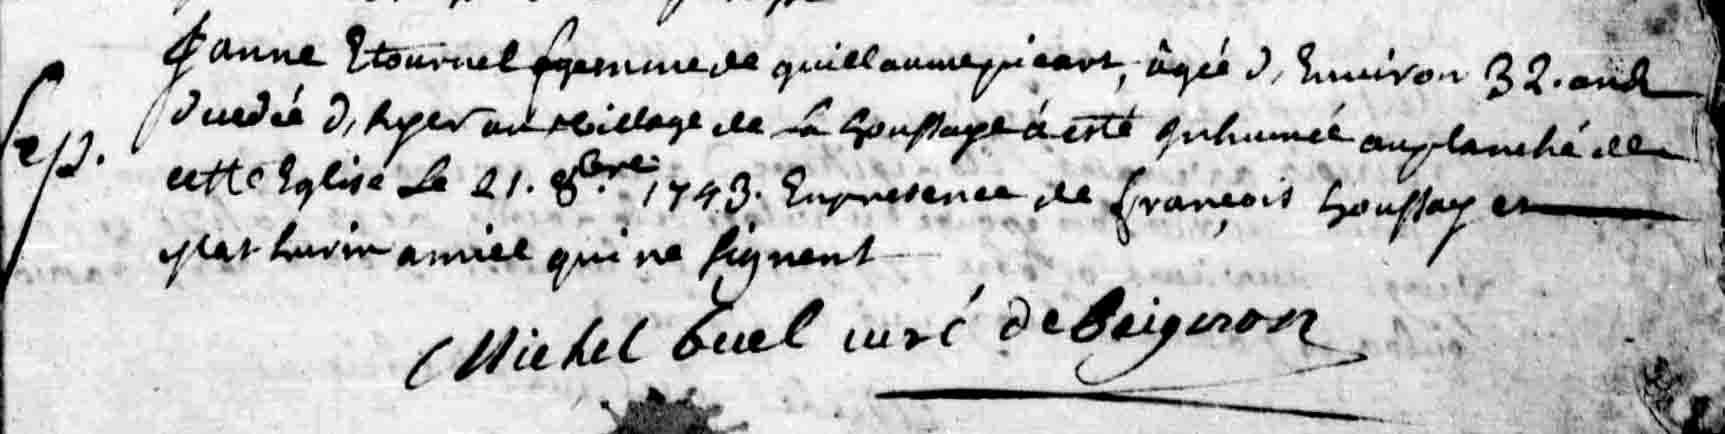 Janne Etournel femme de guillaume picart, âgée d'Environ 32. ans
decedée d'hyer au village de La houssaye a esté Inhumée au planché de
Sep.
cette Eglise Le 21. 8.bre 1743. En presence de François houssay et
Mathurin amiel qui ne signent
Michel Buel curé de Beignon